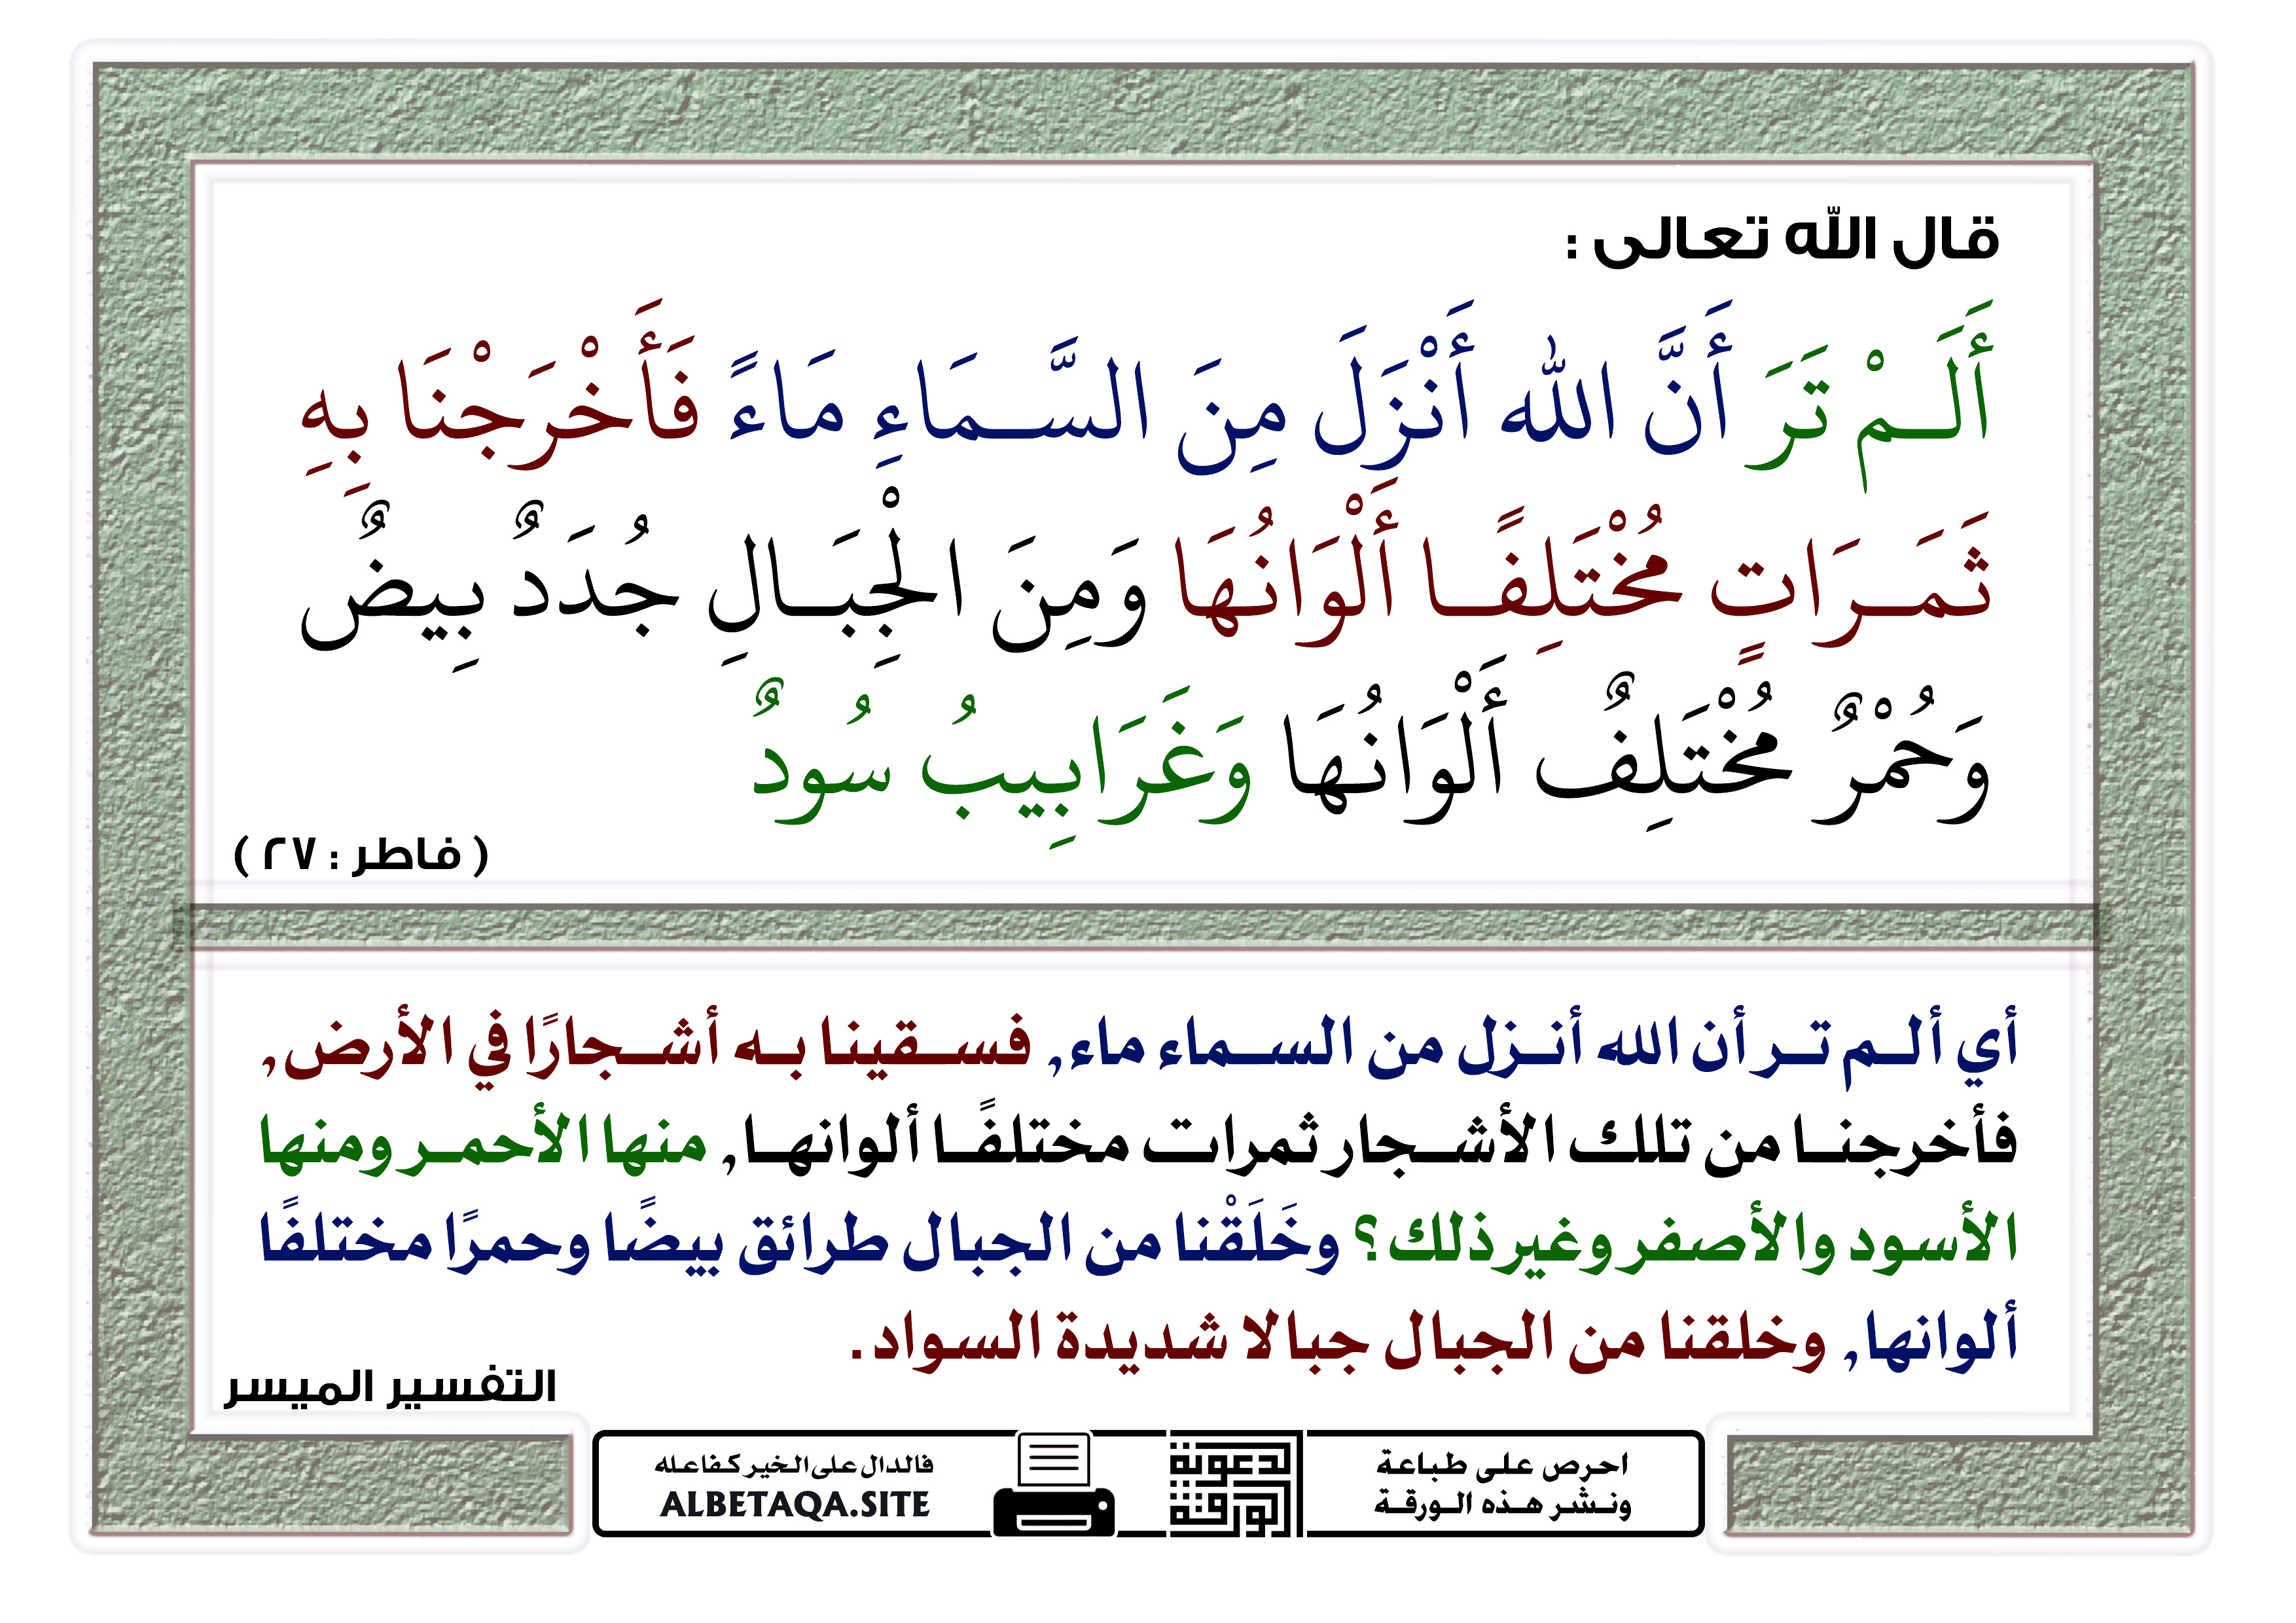 قال الله تعالى :
أَلَمْ تَرَ أَنَّ الله أَنْزَلَ مِنَ السَّمَاءِ مَاءً فَأَخْرَجْنَا بِهِ
ثَمَرَاتٍ مُخْتَلِفًا أَلْوَانُهَا وَمِنَ الْجِبَالِ جُدَدٌ بِيضٌ
وَحُمْرٌ مُخْتَلِفٌ أَلْوَانُهَا وَغَرَابِيبُ سُودٌ
( فاطر : ٢٧ )
أي ألم تر أن الله أنزل من السماء ماء, فسقينا به أشجارًا في الأرض,
فأخرجنا من تلك الأشجار ثمرات مختلفًا ألوانها, منها الأحمر ومنها
الأسود والأصفر وغير ذلك؟ وخَلَقْنا من الجبال طرائق بيضًا وحمرًا مختلفًا
ألوانها, وخلقنا من الجبال جبالا شديدة السواد.
التفسير الميسر
احرص على طباعة
ونشر هذه الورقة
الدعوية
الورقة
فالدال على الخير كفاعله
ALBETAQA.SITE